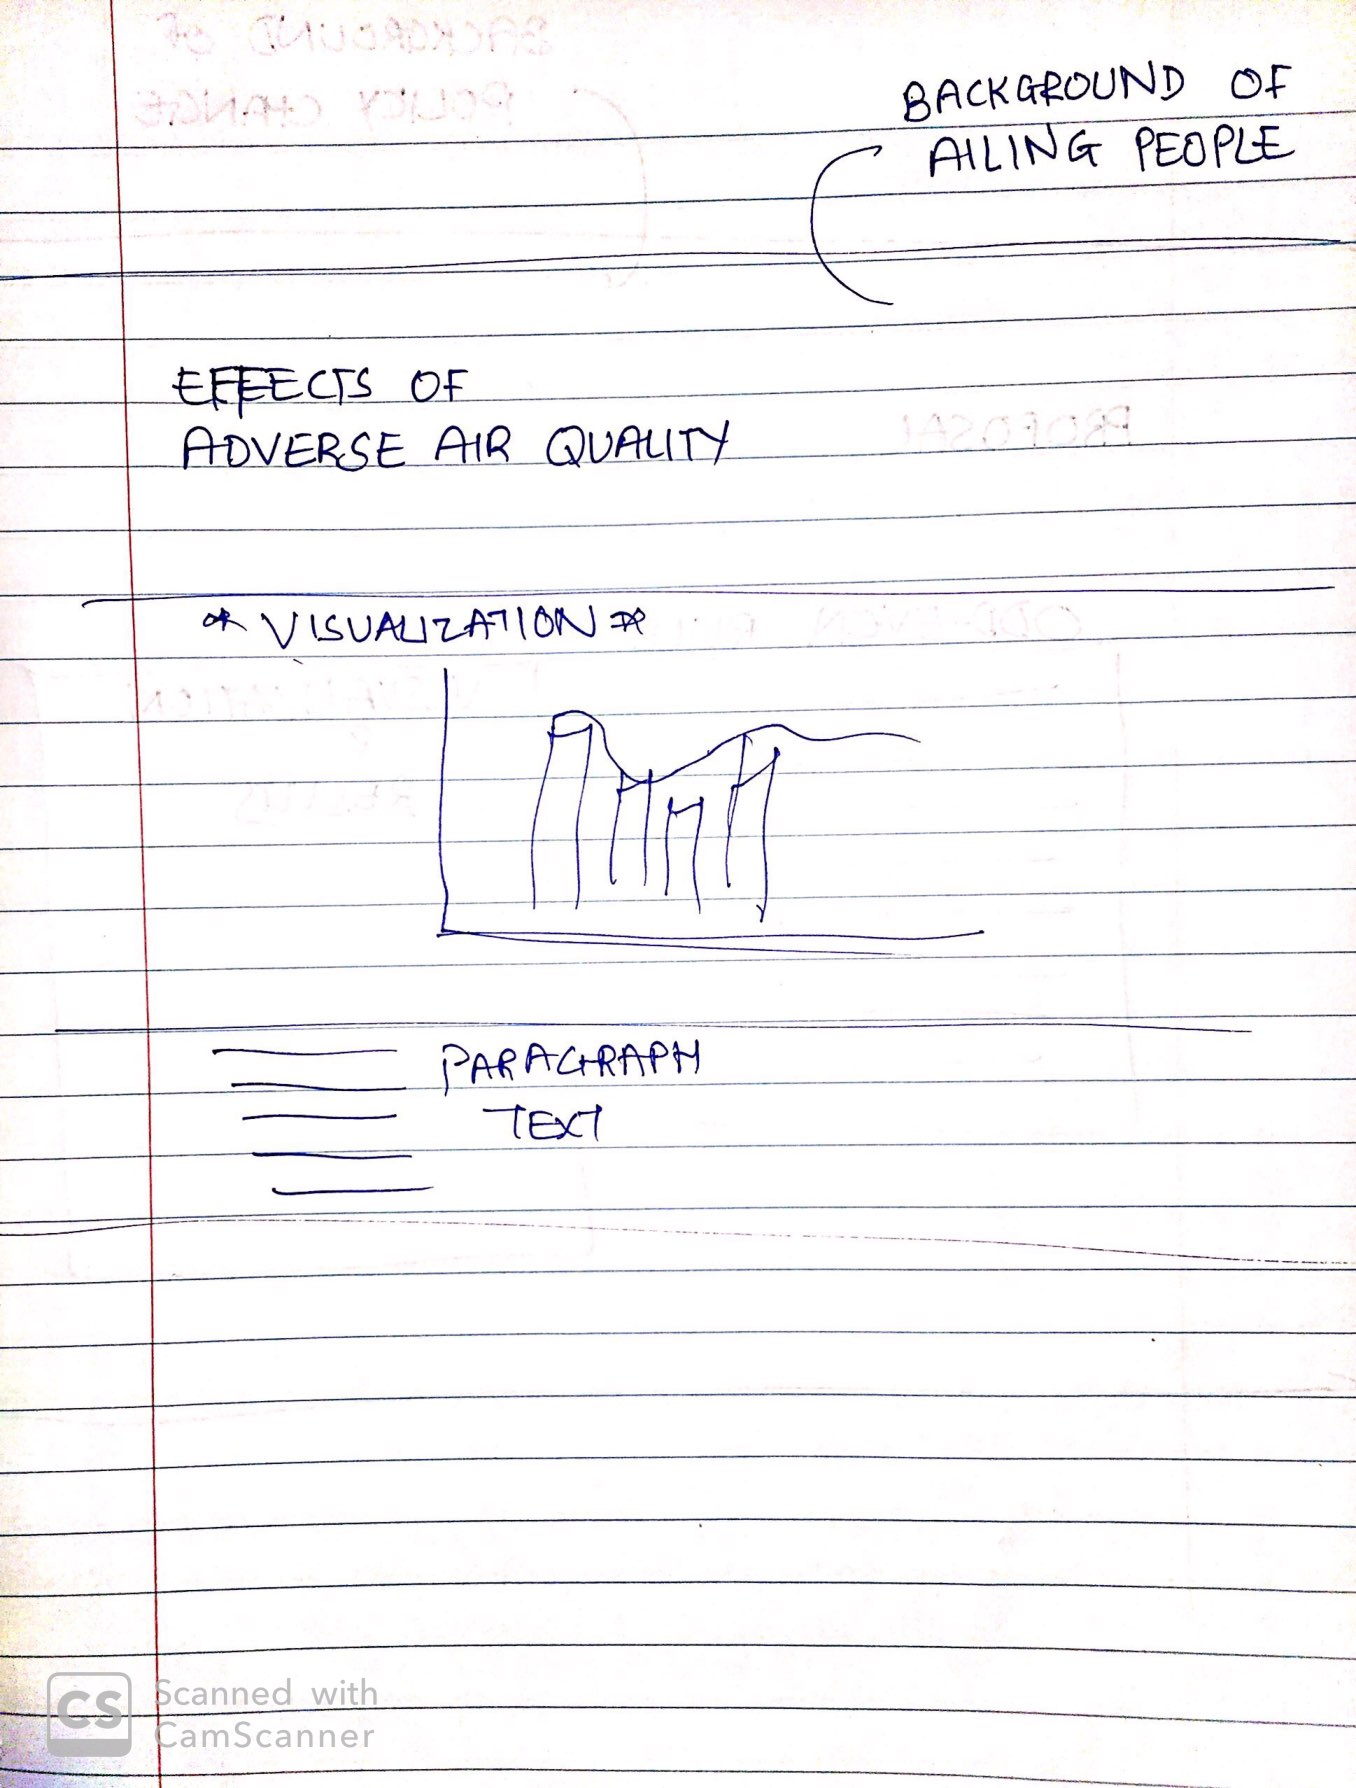 BACKGROUND OF
AILING PEOPLE
EFFECTS OF
ADVERSE AIR QUALITY
* VISUALIZATION *
PARAGRAPH
TEXT
CS Scanned with
CamScanner